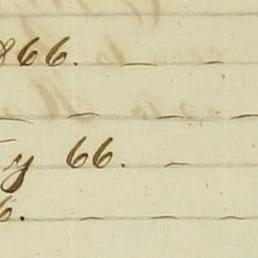 866. — —
— — — —
y 66. —
6. — — —